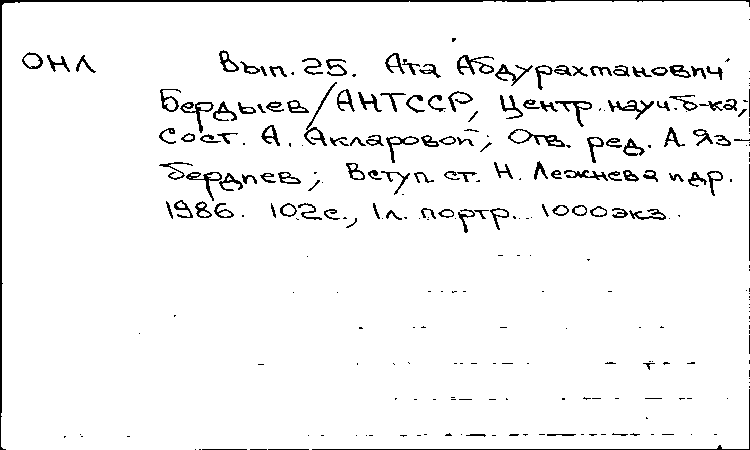 ОНЛ Вып. 25. Ата Абдурахманович
Бердыев / АНТССР, Центр. науч. б-ка;
Сост. А. Акларовой; Отв. ред. А. Яз-
бердиев; Вступ. ст. Н. Лежнева и др.
1986. 102с., 1л. портр. 1000экз.